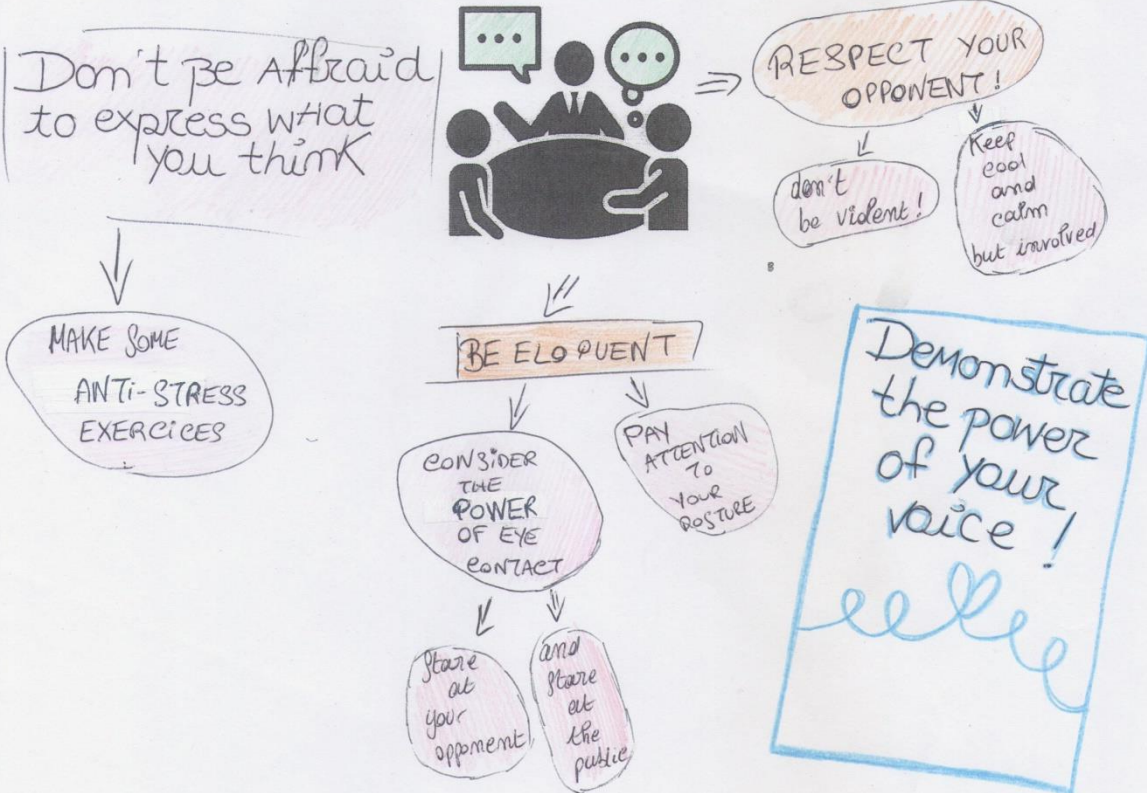 Don't Be Affraid
to express what
you think
MAKE SOME
ANTI-STRESS
EXERCICES
RESPECT YOUR
OPPONENT!
don't
be violent!
Keep
cool
and
calm
but involved
BE ELOQUENT
CONSIDER
THE
POWER
OF EYE
CONTACT
PAY
ATTENTION
TO
YOUR
POSTURE
Stare
at
your
opponent
and
stare
at
the
public
Demonstrate
the power
of your
voice!